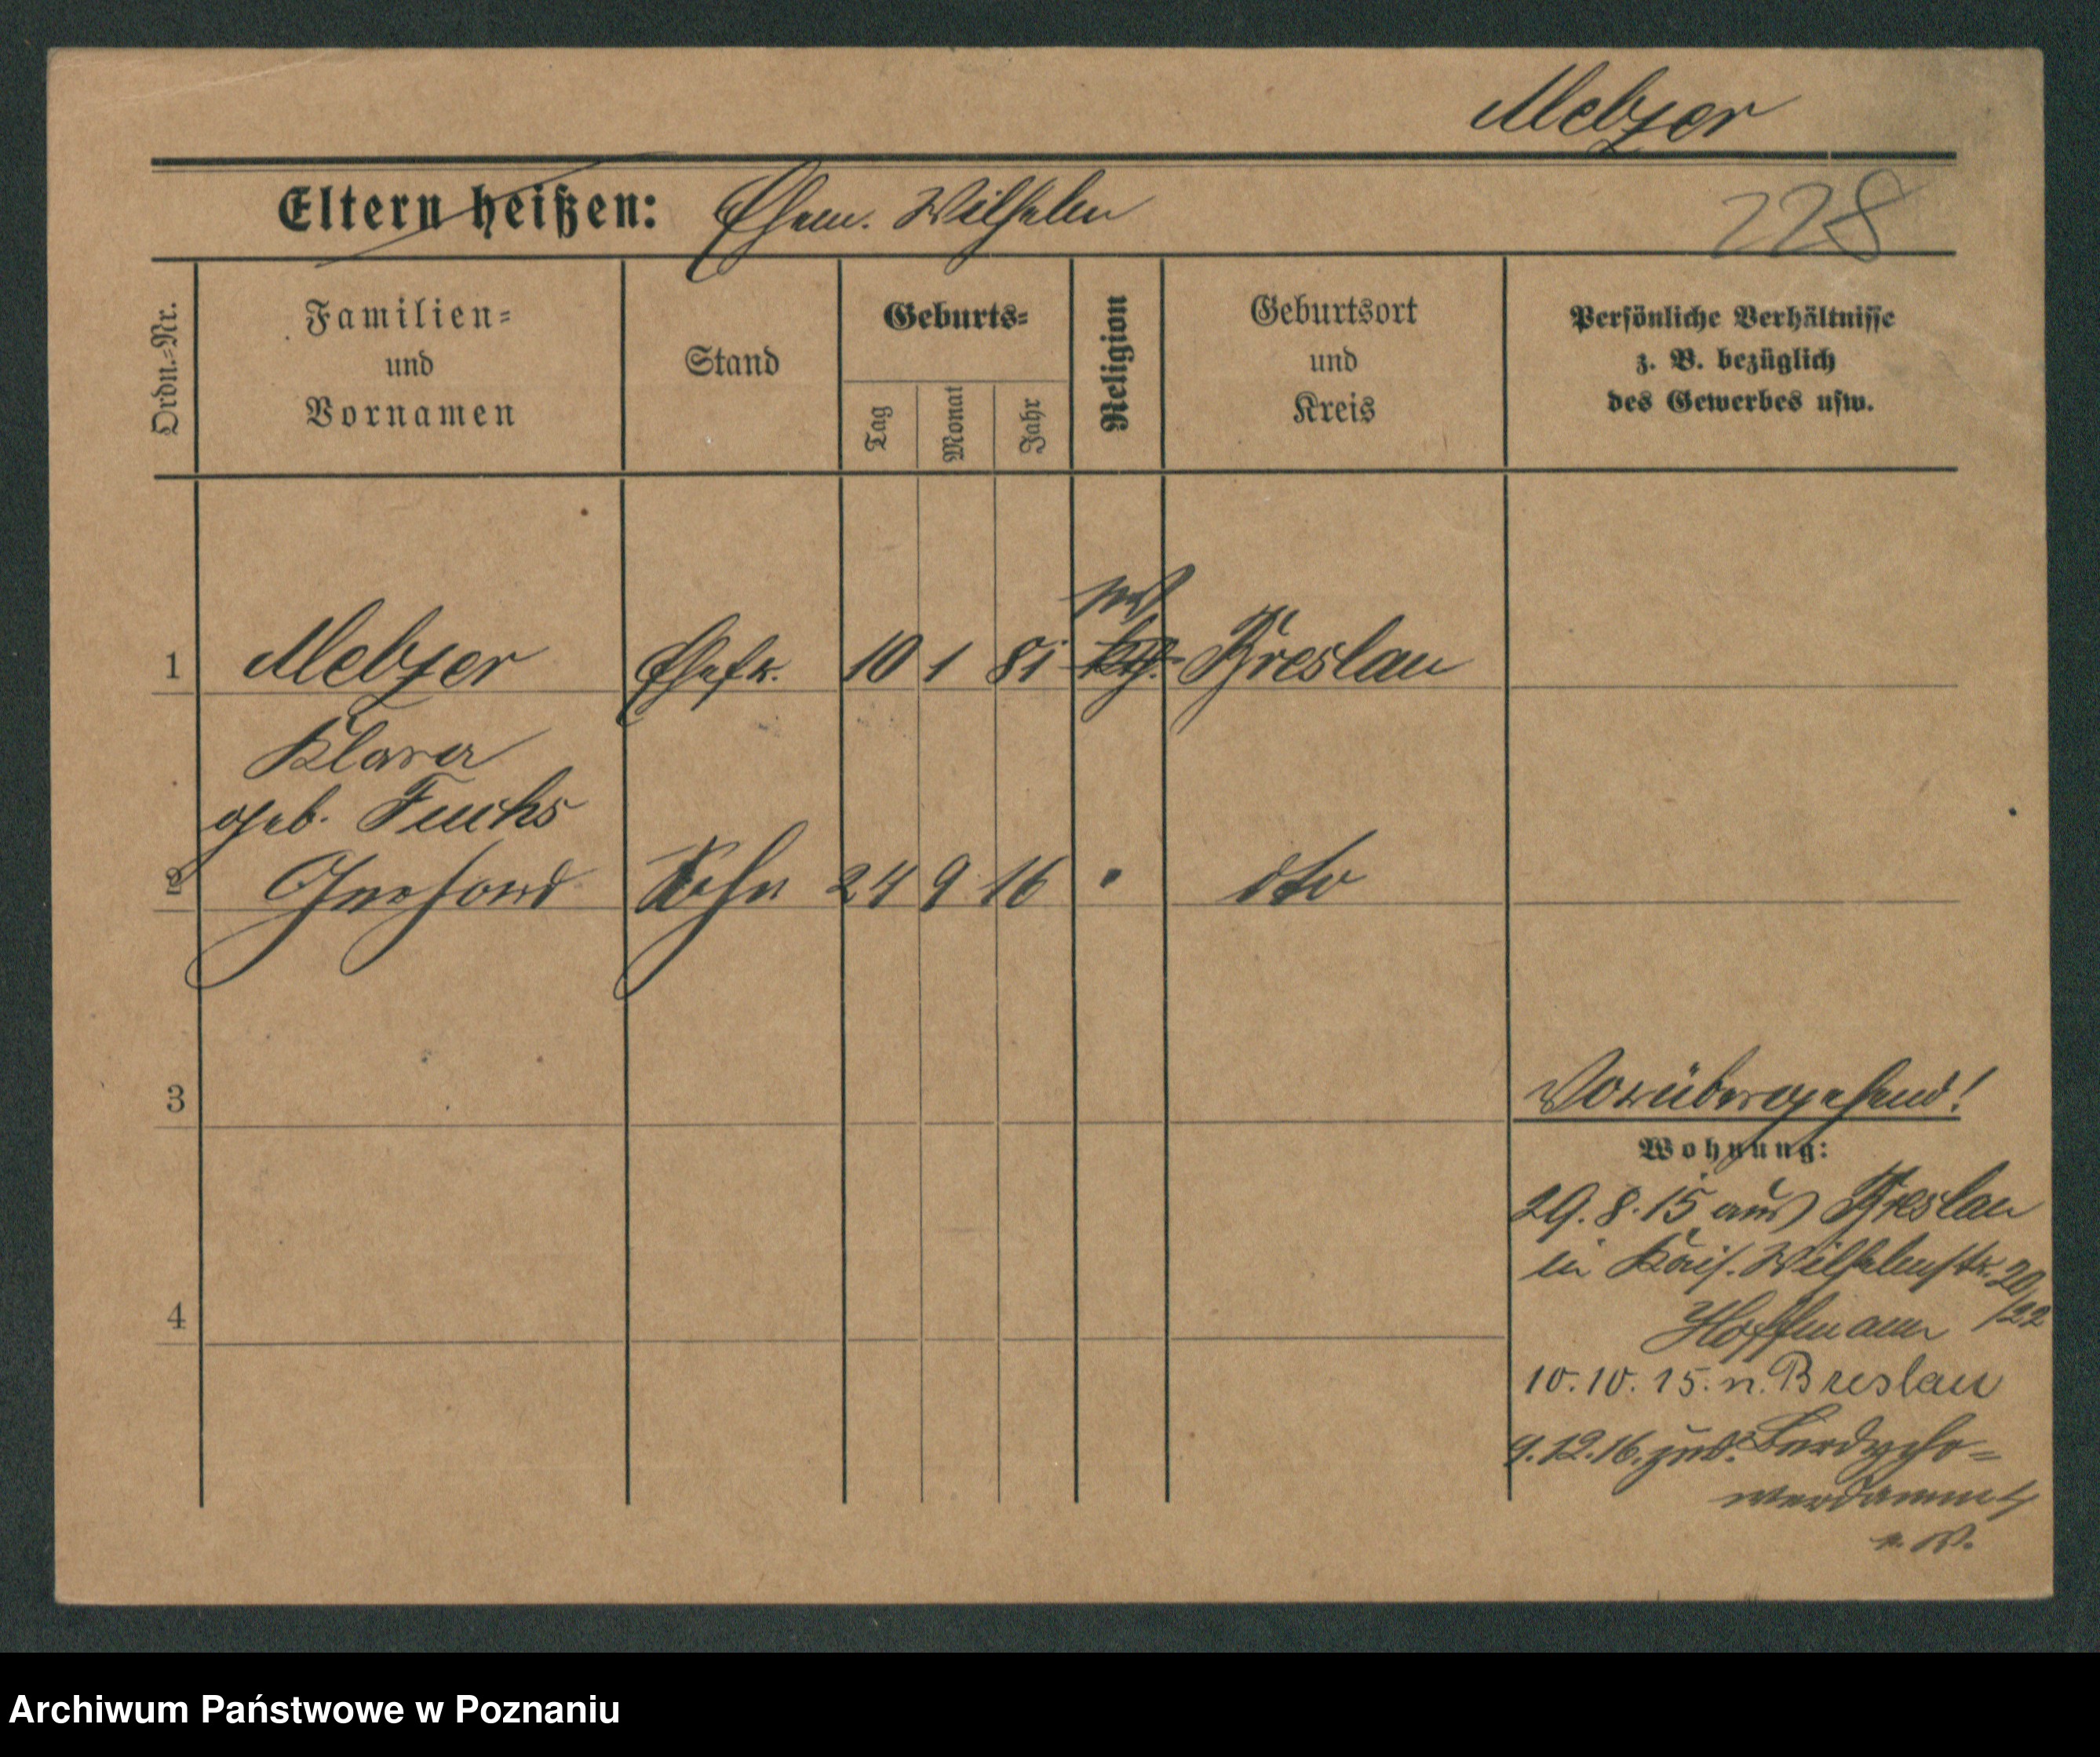 Metzer
Eltern heißen: Ehem. Wilhelm
228
Ordn.=Nr.
Familien=
und
Vornamen
Stand
Geburts=
Tag
Monat
Jahr
Religion
Geburtsort
und
Kreis
Persönliche Verhältnisse
z. B. bezüglich
des Gewerbes usw.
1 Metzer Ehefr. 10 1 81 kth. Breslau
Klara
geb. Fuchs
2 Gerhard Sohn 24 9 16 " dto
3
Vorübergehend!
Wohnung:
29.8.15 aus Breslau
in Kais. Wilhelmstr. 20
/22
Hoffmann
4
10.10.15. n. Breslau
9.12.16. zur. Berdycho=
werdamm 4
Archiwum Państwowe w Poznaniu